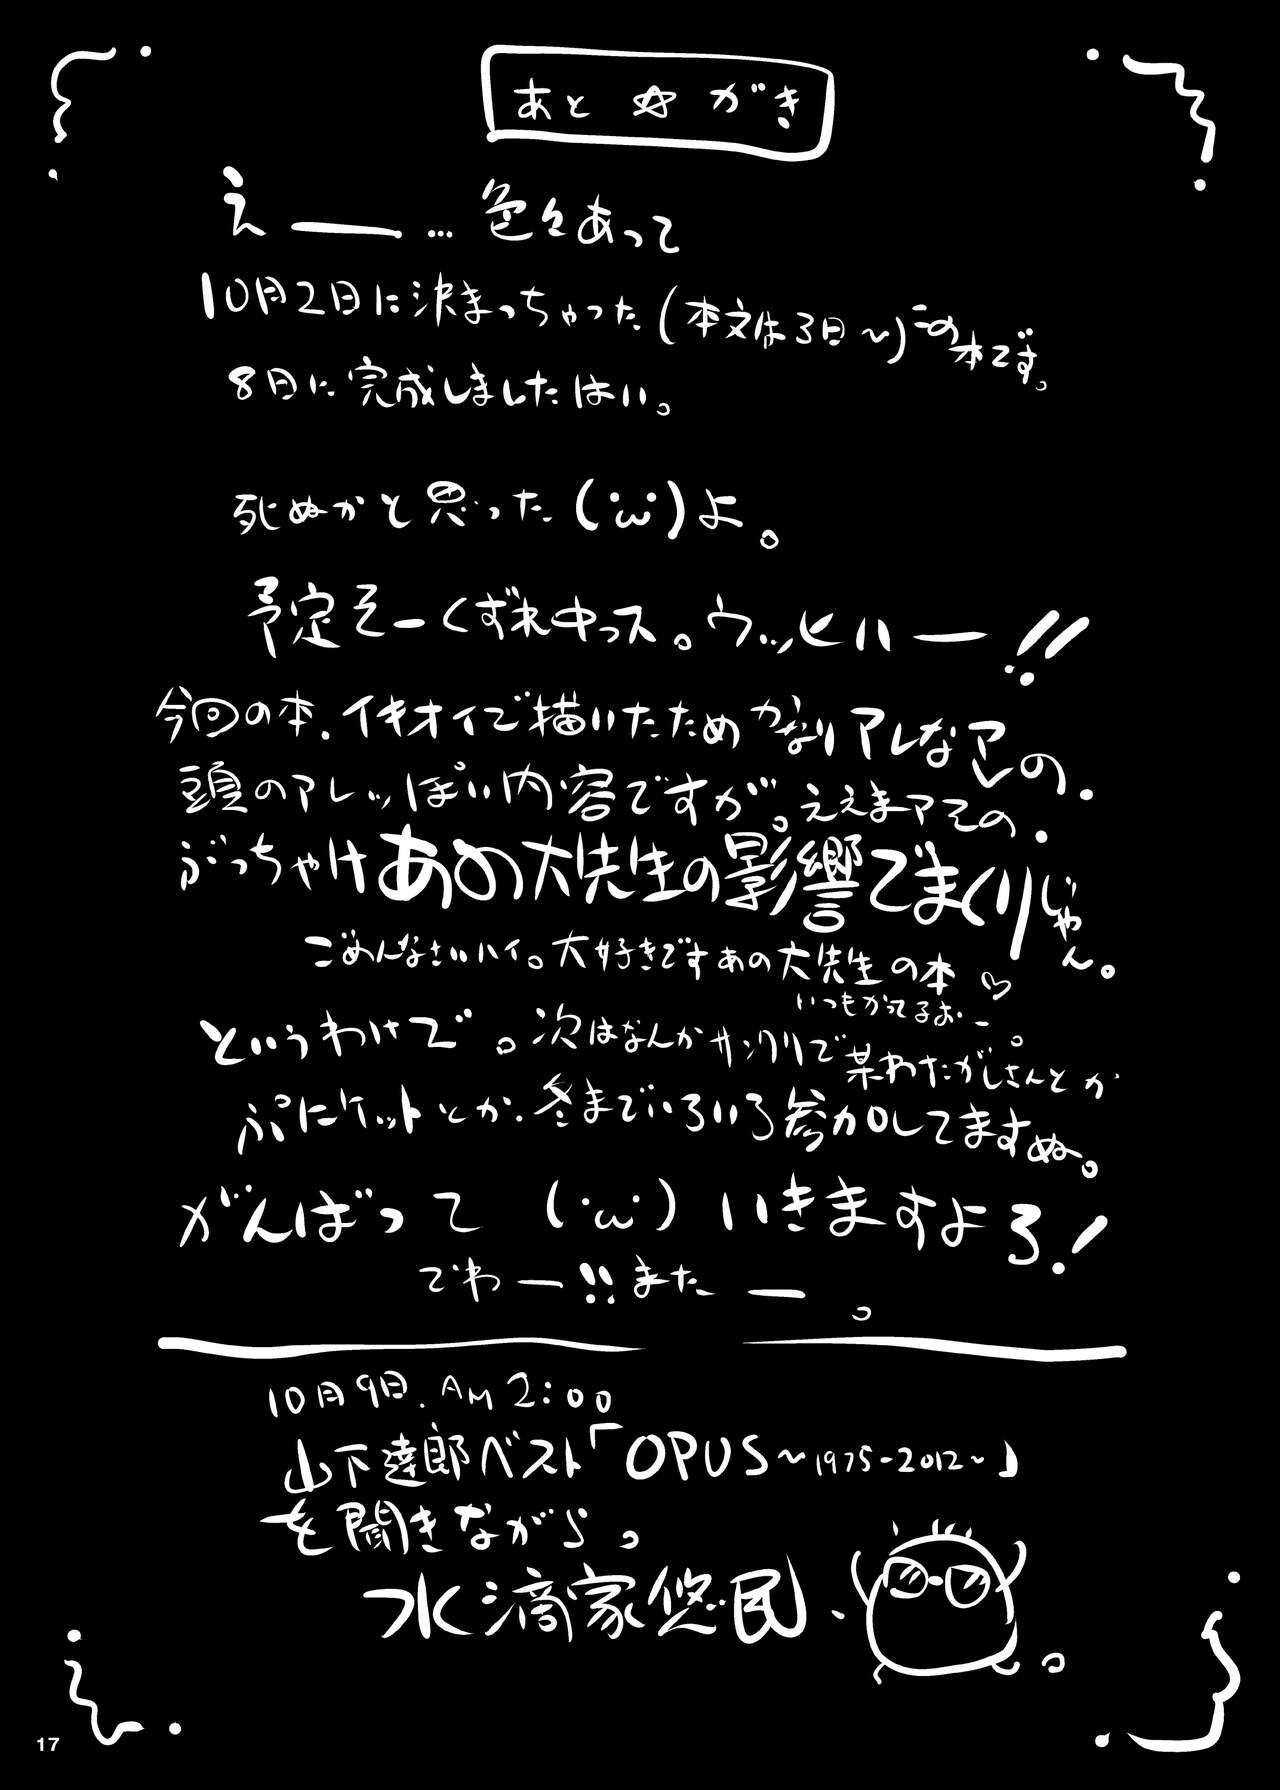 あと☆がき
えー… 色々あって
10月2日に決まっちゃった(本文は3日〜)この本です。
8日に完成しましたはい。
死ぬかと思った(´ω`)よ。
予定そーくずれ中っス。ウッヒハー!!
今回の本、イキオイで描いたため かなりアレなアレの、
頭のアレッぽい内容ですが。ええまアその、
ぶっちゃけあの大先生の影響でまくりじゃん。
ごめんなさいハイ。大好きですあの大先生の本♡
いつもかってるおー。
というわけで。次はなんかサンクリで某わたがしさんとか
ぷにケットとか、冬までいろいろ参加してますぬ。
がんばって (´ω`) いきますよろ!
でわー!!またー。
10月9日、AM2:00
山下達郎ベスト「OPUS〜1975-2012〜」
を聞きながら。
水滴家悠民、
17